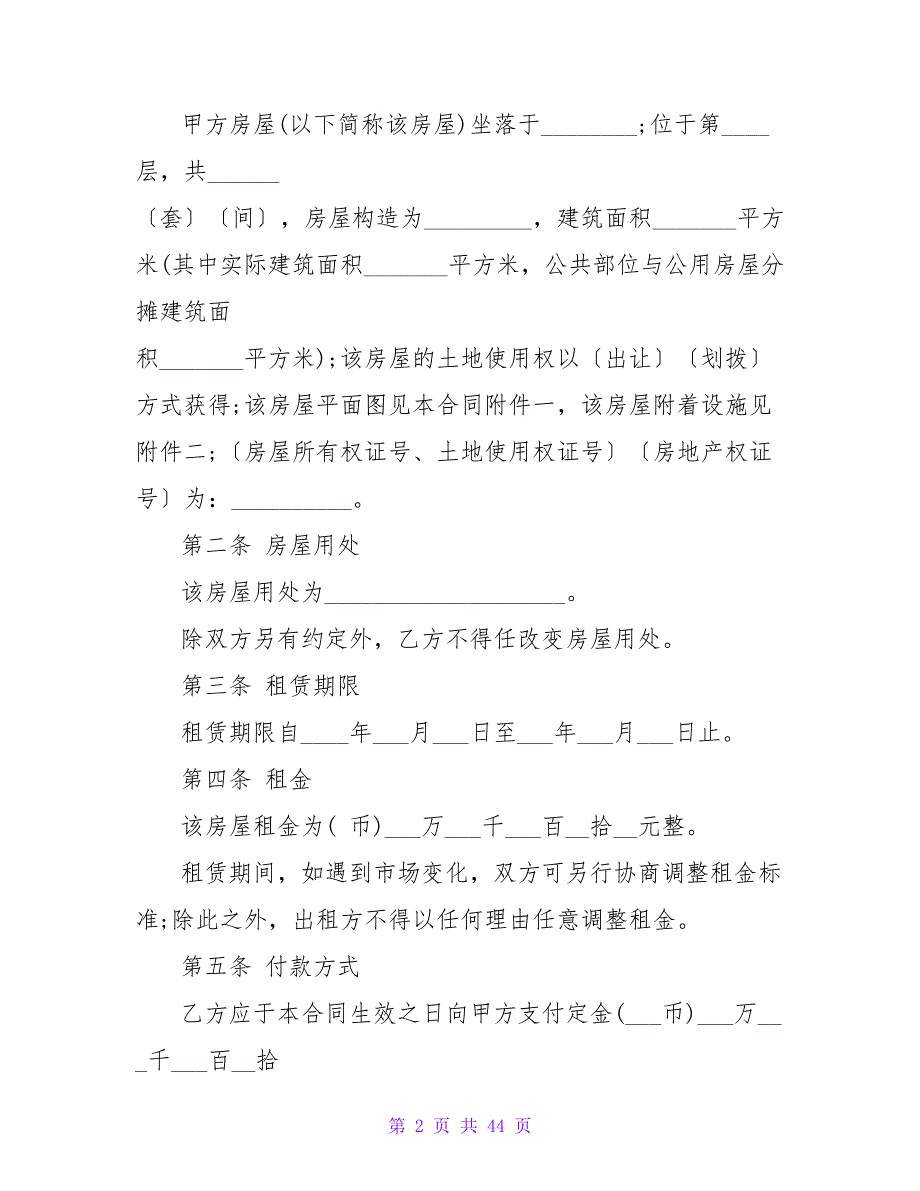 甲方房屋(以下简称该房屋)坐落于________;位于第____
层，共______
〔套〕〔间〕，房屋构造为_________，建筑面积_______平方
米(其中实际建筑面积_______平方米，公共部位与公用房屋分
摊建筑面
积_______平方米);该房屋的土地使用权以〔出让〕〔划拨〕
方式获得;该房屋平面图见本合同附件一，该房屋附着设施见
附件二;〔房屋所有权证号、土地使用权证号〕〔房地产权证
号〕为：__________。
第二条 房屋用处
该房屋用处为____________________。
除双方另有约定外，乙方不得任改变房屋用处。
第三条 租赁期限
租赁期限自____年___月___日至___年___月___日止。
第四条 租金
该房屋租金为( 币)___万___千___百__拾__元整。
租赁期间，如遇到市场变化，双方可另行协商调整租金标
准;除此之外，出租方不得以任何理由任意调整租金。
第五条 付款方式
乙方应于本合同生效之日向甲方支付定金(___币)___万__
_千___百__拾
第 2 页 共 44 页